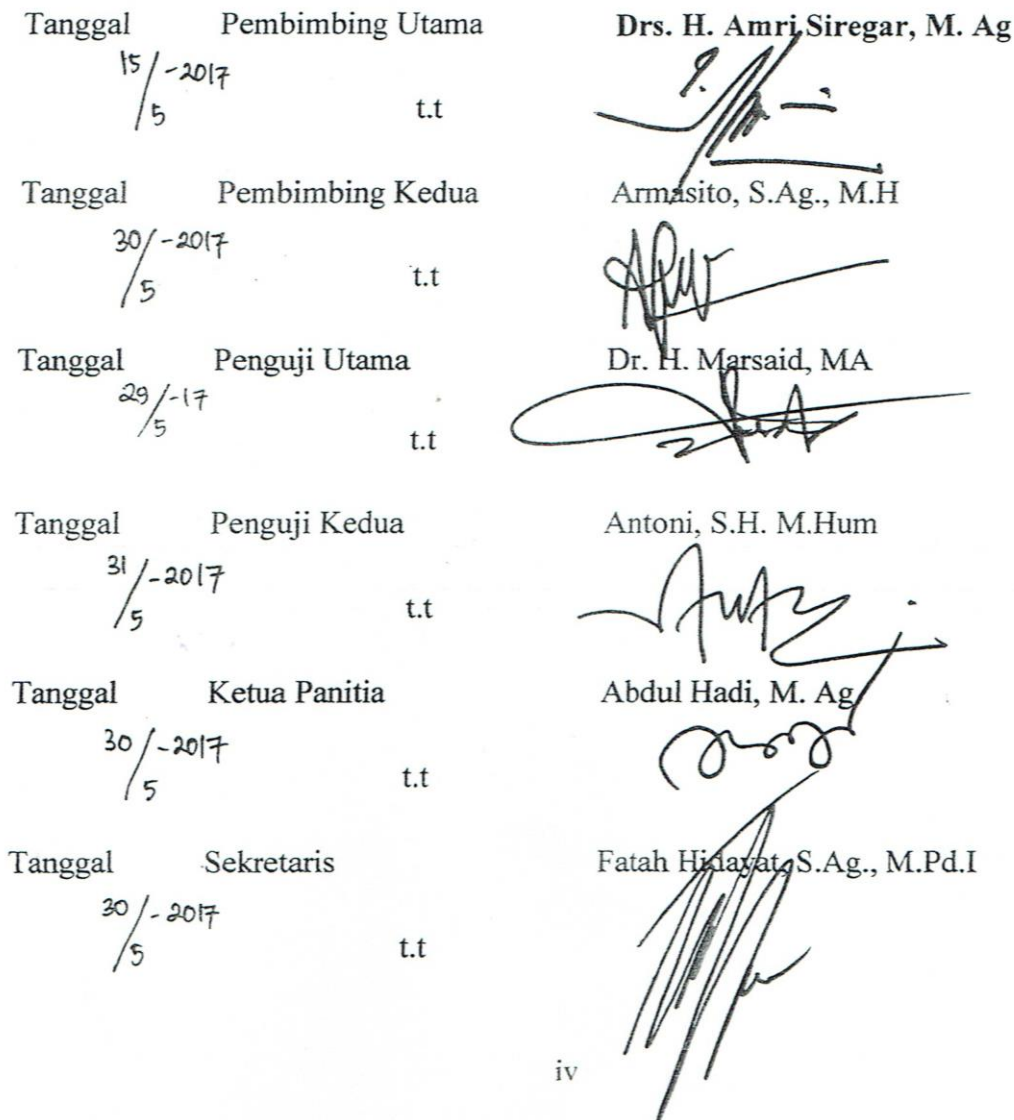 Tanggal Pembimbing Utama Drs. H. Amri Siregar, M. Ag
15/5-2017 t.t
Tanggal Pembimbing Kedua Armasito, S.Ag., M.H
30/5-2017 t.t
Tanggal Penguji Utama Dr. H. Marsaid, MA
29/5-17 t.t
Tanggal Penguji Kedua Antoni, S.H. M.Hum
31/5-2017 t.t
Tanggal Ketua Panitia Abdul Hadi, M. Ag
30/5-2017 t.t
Tanggal Sekretaris Fatah Hidayat, S.Ag., M.Pd.I
30/5-2017 t.t
iv